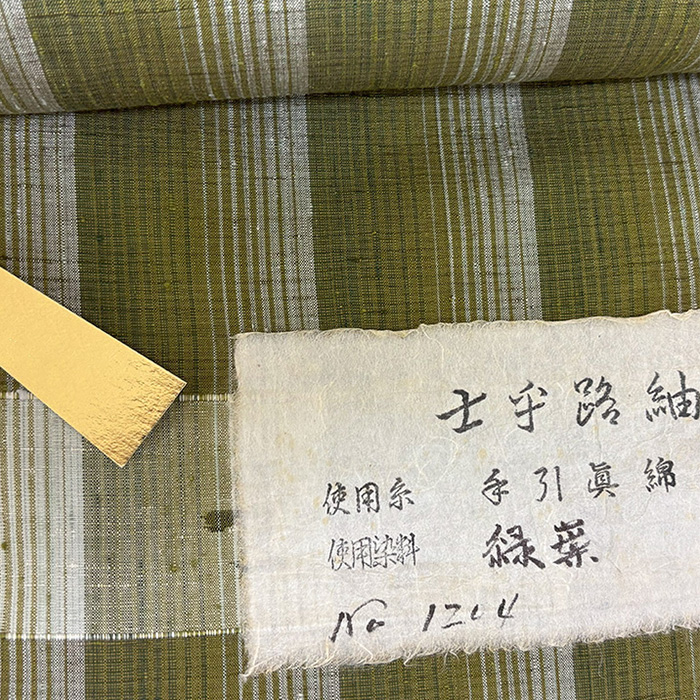 士乎路紬
使用糸 手引眞綿
使用染料 緑葉
No 1204